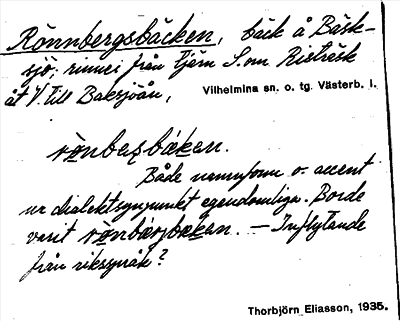 Rönnbergsbäcken, bäck å Bäsk-
sjö, rinner från tjärn S. om Risträsk
åt V. till Baksjöån,
Vilhelmina sn. o. tg. Västerb. l.
rönbesbäken.
Både namnform o. accent
ur dialektsynpunkt egendomliga. Borde
varit rönbärsbäkan. — Inflytande
från riksspråk?
Thorbjörn Eliasson, 1935.